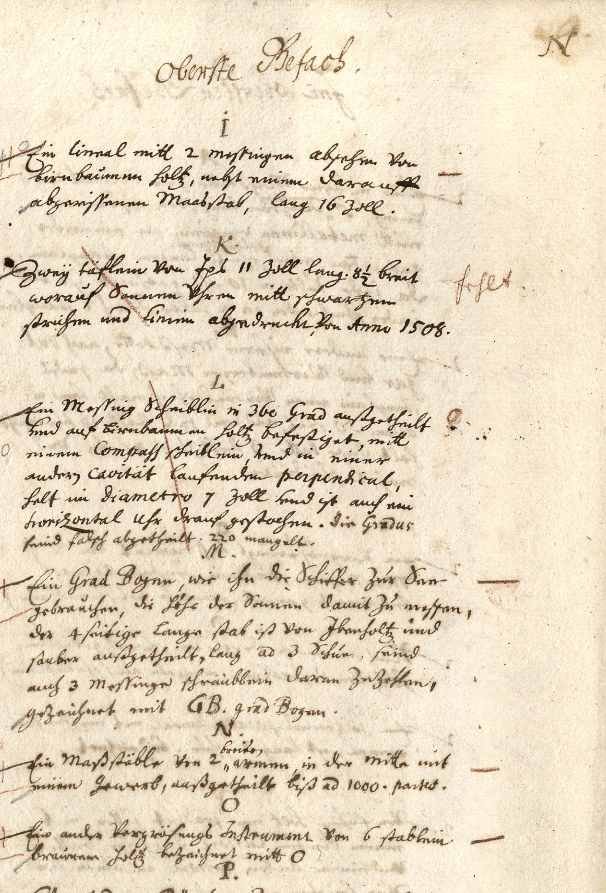 N
Oberste Refach.
I
Ein lineal mitt 2 messingen absehen von
birnbaumen holtz, nebst einem darauff
abgerissenen Maasstab, lang 16 Zoll.
K.
Zwey täflein von Jps 11 Zoll lang. 8½ breit
worauf Sonnen Uhren mitt schwartzen
strichen und Linien abgedruckt, von Anno 1508.
fehlt.
L
Ein Messing Scheiblin in 360 Grad außgetheilt
und auf birnbaumen holtz befestiget, mitt
einem Compass scheiblein, und in einer
andern cavitât lauffendem perpendical,
helt im diametro 7 Zoll und ist auch ein
horizontal Uhr drauf gestochen. die Gradus
seind falsch abgetheilt. 220 mangelt.
M.
Ein Grad Bogen, wie ihn die Schiffer zur See
gebrauchen, die Höhe der Sonnen damit zu messen,
der 4 seitige lange stab ist von Ibenholtz und
sauber außgetheilt, lang ad 3 Schue, seind
auch 3 Messinge schraübblein daran
gezeichnet mit GB. grad Bogen.
N.
Ein Maßstäble von 2 breite, armen, in der mitte mit
einem gewerb, außgetheilt biß ad 1000. partes.
O
Ein ander Instrument von 6 stablein
braunem holtz bezeichnet mitt O
P.